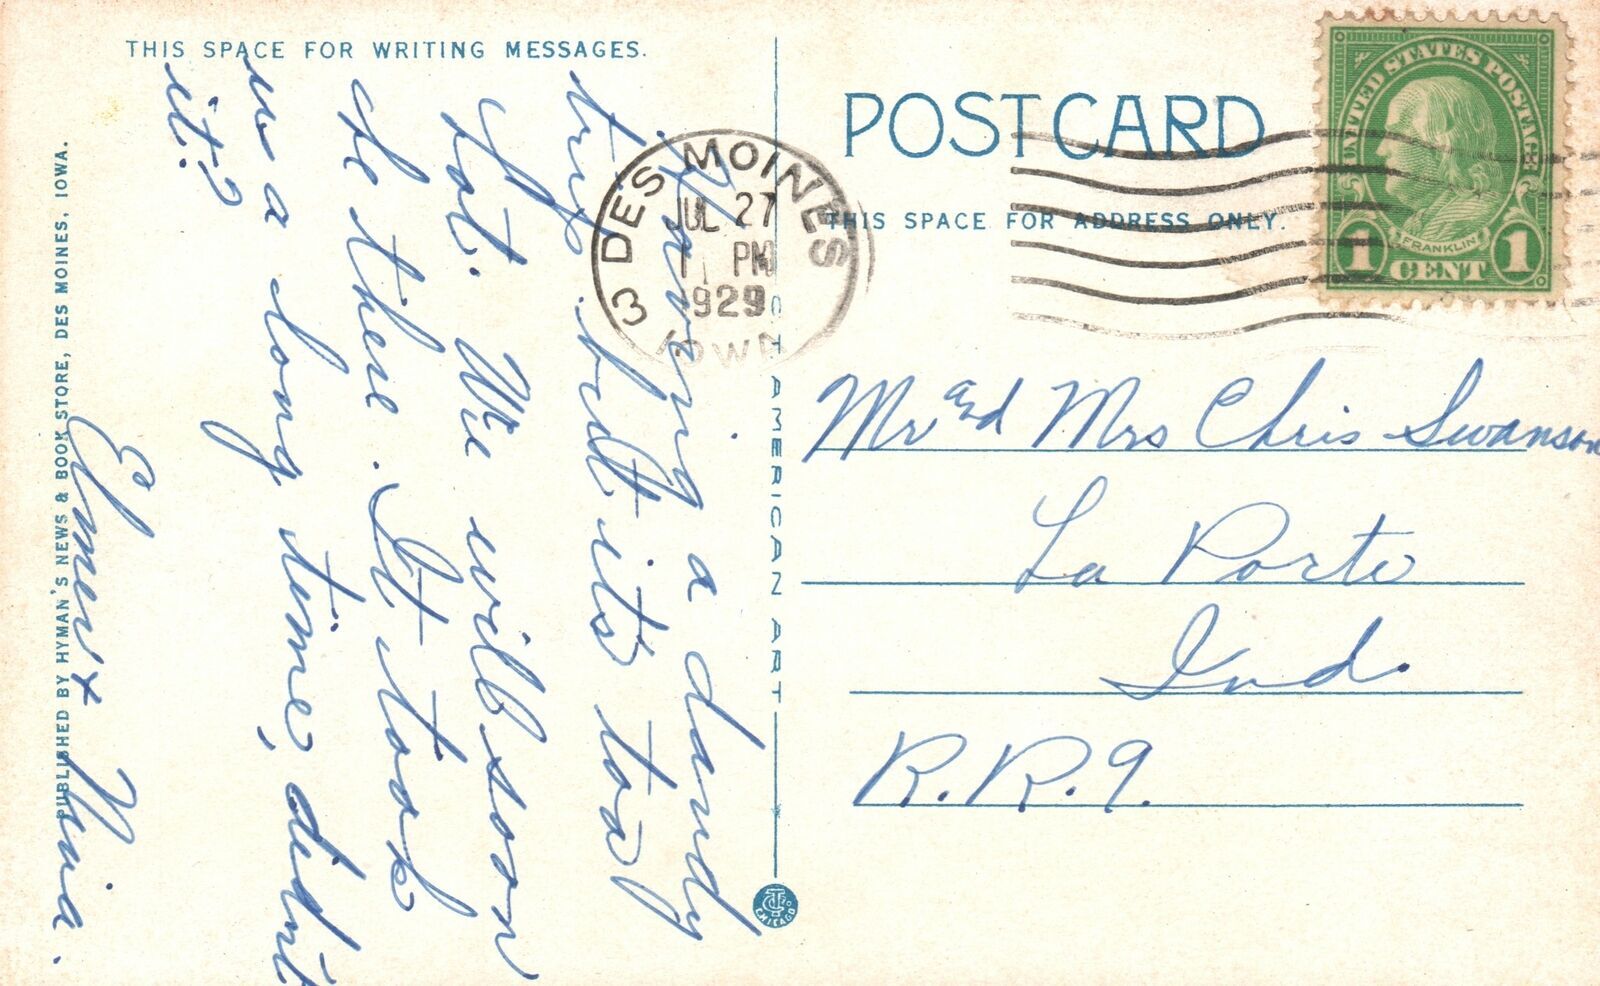 THIS SPACE FOR WRITING MESSAGES.
Having a dandy
trip but its too
Hot. We will soon
be there. It took
us a long time, didnt
it?
Elmer & Nina.
PUBLISHED BY HYMAN'S NEWS & BOOK STORE, DES MOINES, IOWA.
C T AMERICAN ART
CHICAGO
POST CARD
THIS SPACE FOR ADDRESS ONLY.
DES MOINES
JUL 27
PM
1929
IOWA
3
UNITED STATES POSTAGE
FRANKLIN
1 CENT 1
Mr and Mrs Chris Swanson
La Porte
Ind.
R.R.9.